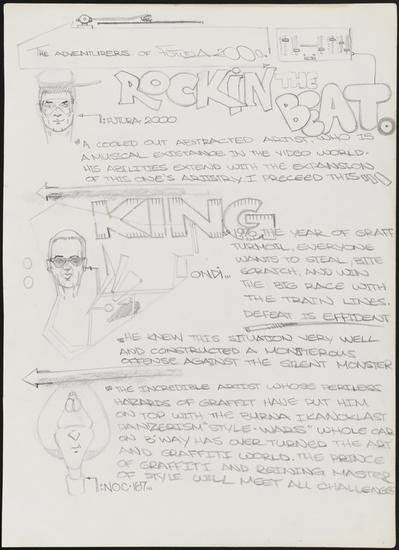 THE ADVENTURERS OF FUTURA 2000
ROCKIN THE
BEAT.
1: FUTURA 2000
A COOLED OUT ABSTRACTED ARTIST, WHO IS
A MUSICAL EXISTANCE IN THE VIDEO WORLD.
HIS ABILITIES EXTEND WITH THE EXPANSION
OF THIS ONE'S ARTISTRY. I PRECEED THIS
KING
ONDI...
THE YEAR OF GRAFF
TURMOIL, EVERYONE
WANTS TO STEAL, BITE
SCRATCH, AND WIN
THE BIG RACE WITH
THE TRAIN LINES.
DEFEAT IS EFFIDENT
HE KNEW THIS SITUATION VERY WELL
AND CONSTRUCTED A MONSTEROUS
OFFENSE AGAINST THE SILENT MONSTER
THE INCREDIBLE ARTIST WHOSE PERILESS
HAZARDS OF GRAFFIT HAVE PUT HIM
ON TOP WITH THE BURNA IKANOKLAST
PANZERISM "STYLE-WARS" WHOLE CAR
ON 3 WAY HAS OVER TURNED THE ART
AND GRAFFITI WORLD. THE PRINCE
OF GRAFFITI AND REINING MASTER
OF STYLE WILL MEET ALL CHALLENGES
1: NOC·167...